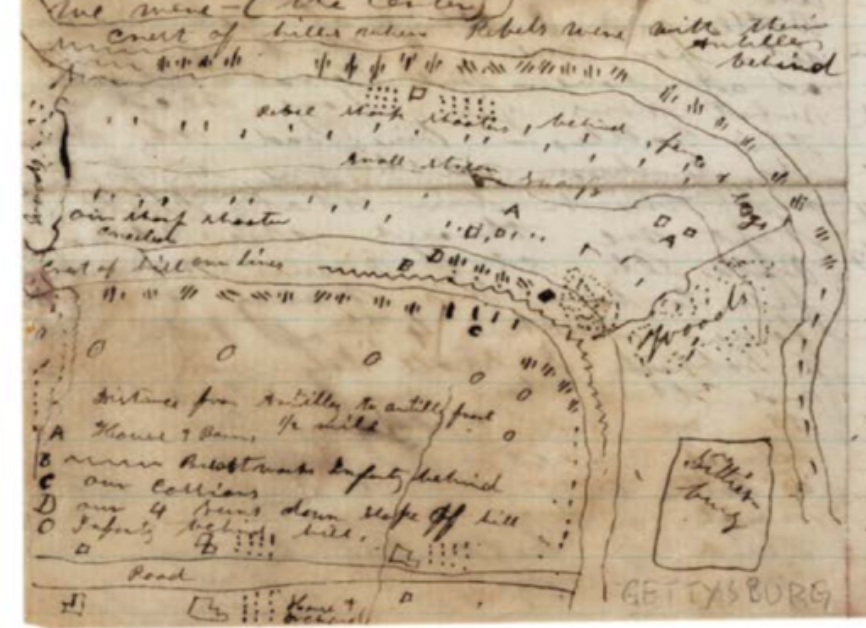 we were - (the Center)
Crest of hills where Rebels were with their
Artillery
behind
Rebel sharp shooters, behind fence & logs
Small stream
A
our sharp shooter
A
Crest of hill our lines
B
D
woods
C
Distance from Artillery to artillery
A House & Barn, 1/2 mile
B Breastworks Infanty behind
C our Cassions
D our 4 Guns down slope of hill
O Infanty behind hill.
Gettiesburg
Road
House &
GETTYSBURG